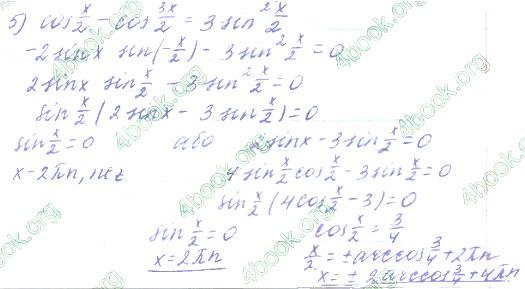 5) cos x/2 - cos 3x/2 = 3 sin² x/2
-2 sin x sin(-x/2) - 3 sin² x/2 = 0
2 sin x sin x/2 - 3 sin² x/2 = 0
sin x/2 (2 sin x - 3 sin x/2) = 0
sin x/2 = 0 або 2 sin x - 3 sin x/2 = 0
x - 2πn, n∈Z 4 sin x/2 cos x/2 - 3 sin x/2 = 0
sin x/2 (4 cos x/2 - 3) = 0
sin x/2 = 0 cos x/2 = 3/4
x = 2πn x/2 = ± arccos 3/4 + 2πn
x = ± 2 arccos 3/4 + 4πn
4book.org
4book.org
4book.org
4book.org
4book.org
4book.org